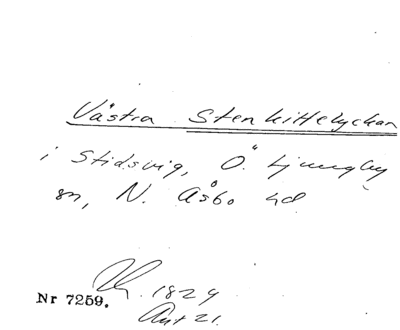 Västra Stenkittelyckan
i Stidsvig, Ö. Ljungby
sn, N. Åsbo hd
1829
Nr 7259.
21.